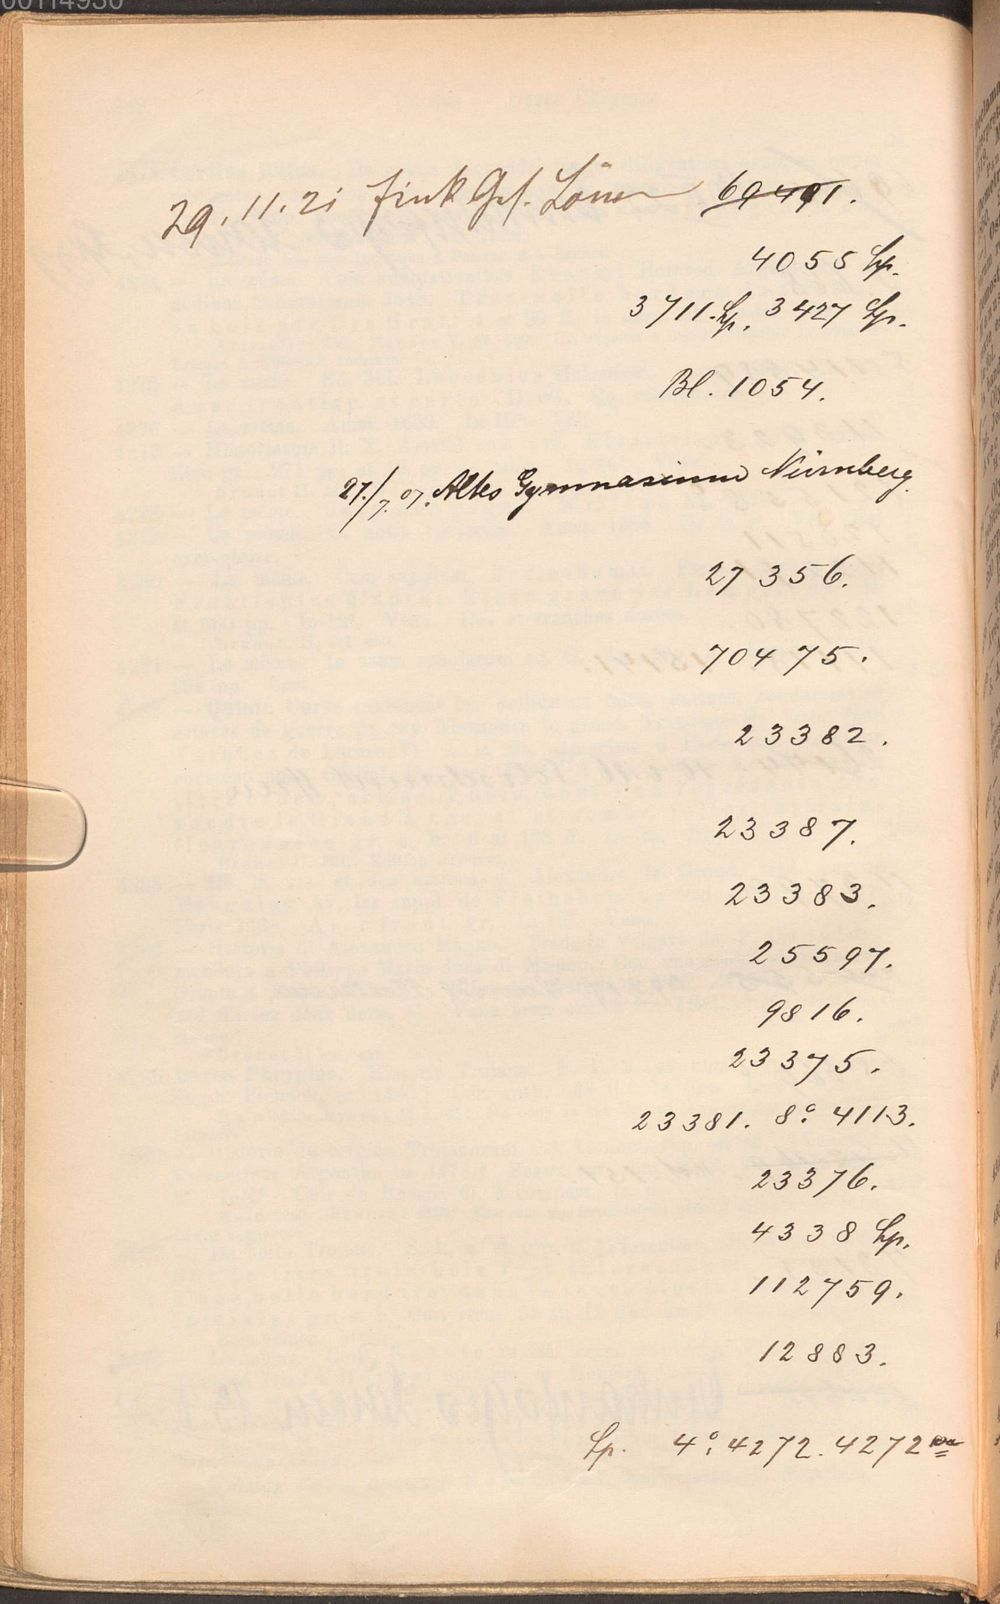 00114930
29.11.21 Fink Gef. 69491.
4055 Sp.
3711. Sp. 3427 Sp.
Bl. 1054.
27./7.07. Altes Gymnasium Nürnberg.
27356.
70475.
23382.
23387.
23383.
25597.
9816.
23375.
23381. 8º 4113.
23376.
4338 Sp.
112759.
12883.
Sp. 4º 4272. 4272